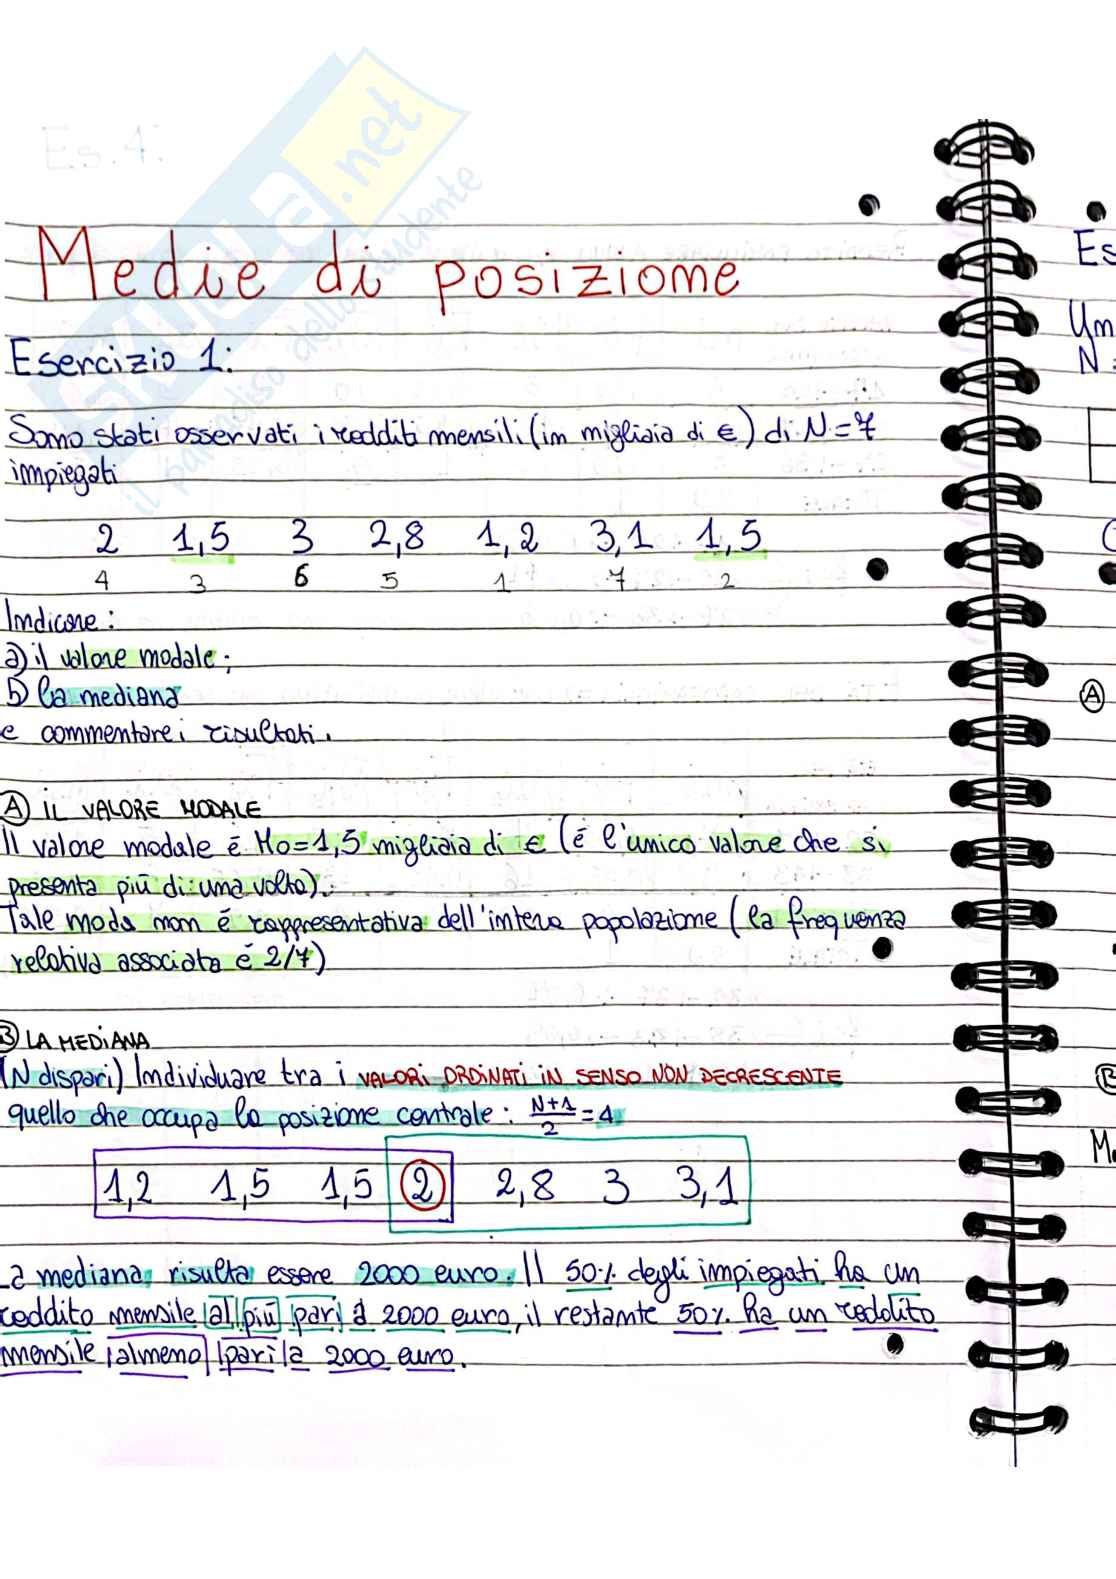 Es.4:
skuola.net
il paradiso dello studente
Medie di posizione
Esercizio 1:
Sono stati osservati i redditi mensili (in migliaia di €) di N=7
impiegati
2 1,5 3 2,8 1,2 3,1 1,5
4 3 6 5 1 7 2
Indicare:
a) il valore modale;
b) la mediana
e commentare i risultati.
A IL VALORE MODALE
Il valore modale è Mo=1,5 migliaia di € (è l'unico valore che si
presenta più di una volta).
Tale moda non è rappresentativa dell'intera popolazione (la frequenza
relativa associata è 2/7)
B LA MEDIANA
(N dispari) Individuare tra i VALORI ORDINATI IN SENSO NON DECRESCENTE
quello che occupa la posizione centrale: N+1/2 = 4
1,2 1,5 1,5 2 2,8 3 3,1
La mediana risulta essere 2000 euro. Il 50% degli impiegati ha un
reddito mensile al più pari a 2000 euro, il restante 50% ha un reddito
mensile almeno pari a 2000 euro.
Es
Un
N =
A
B